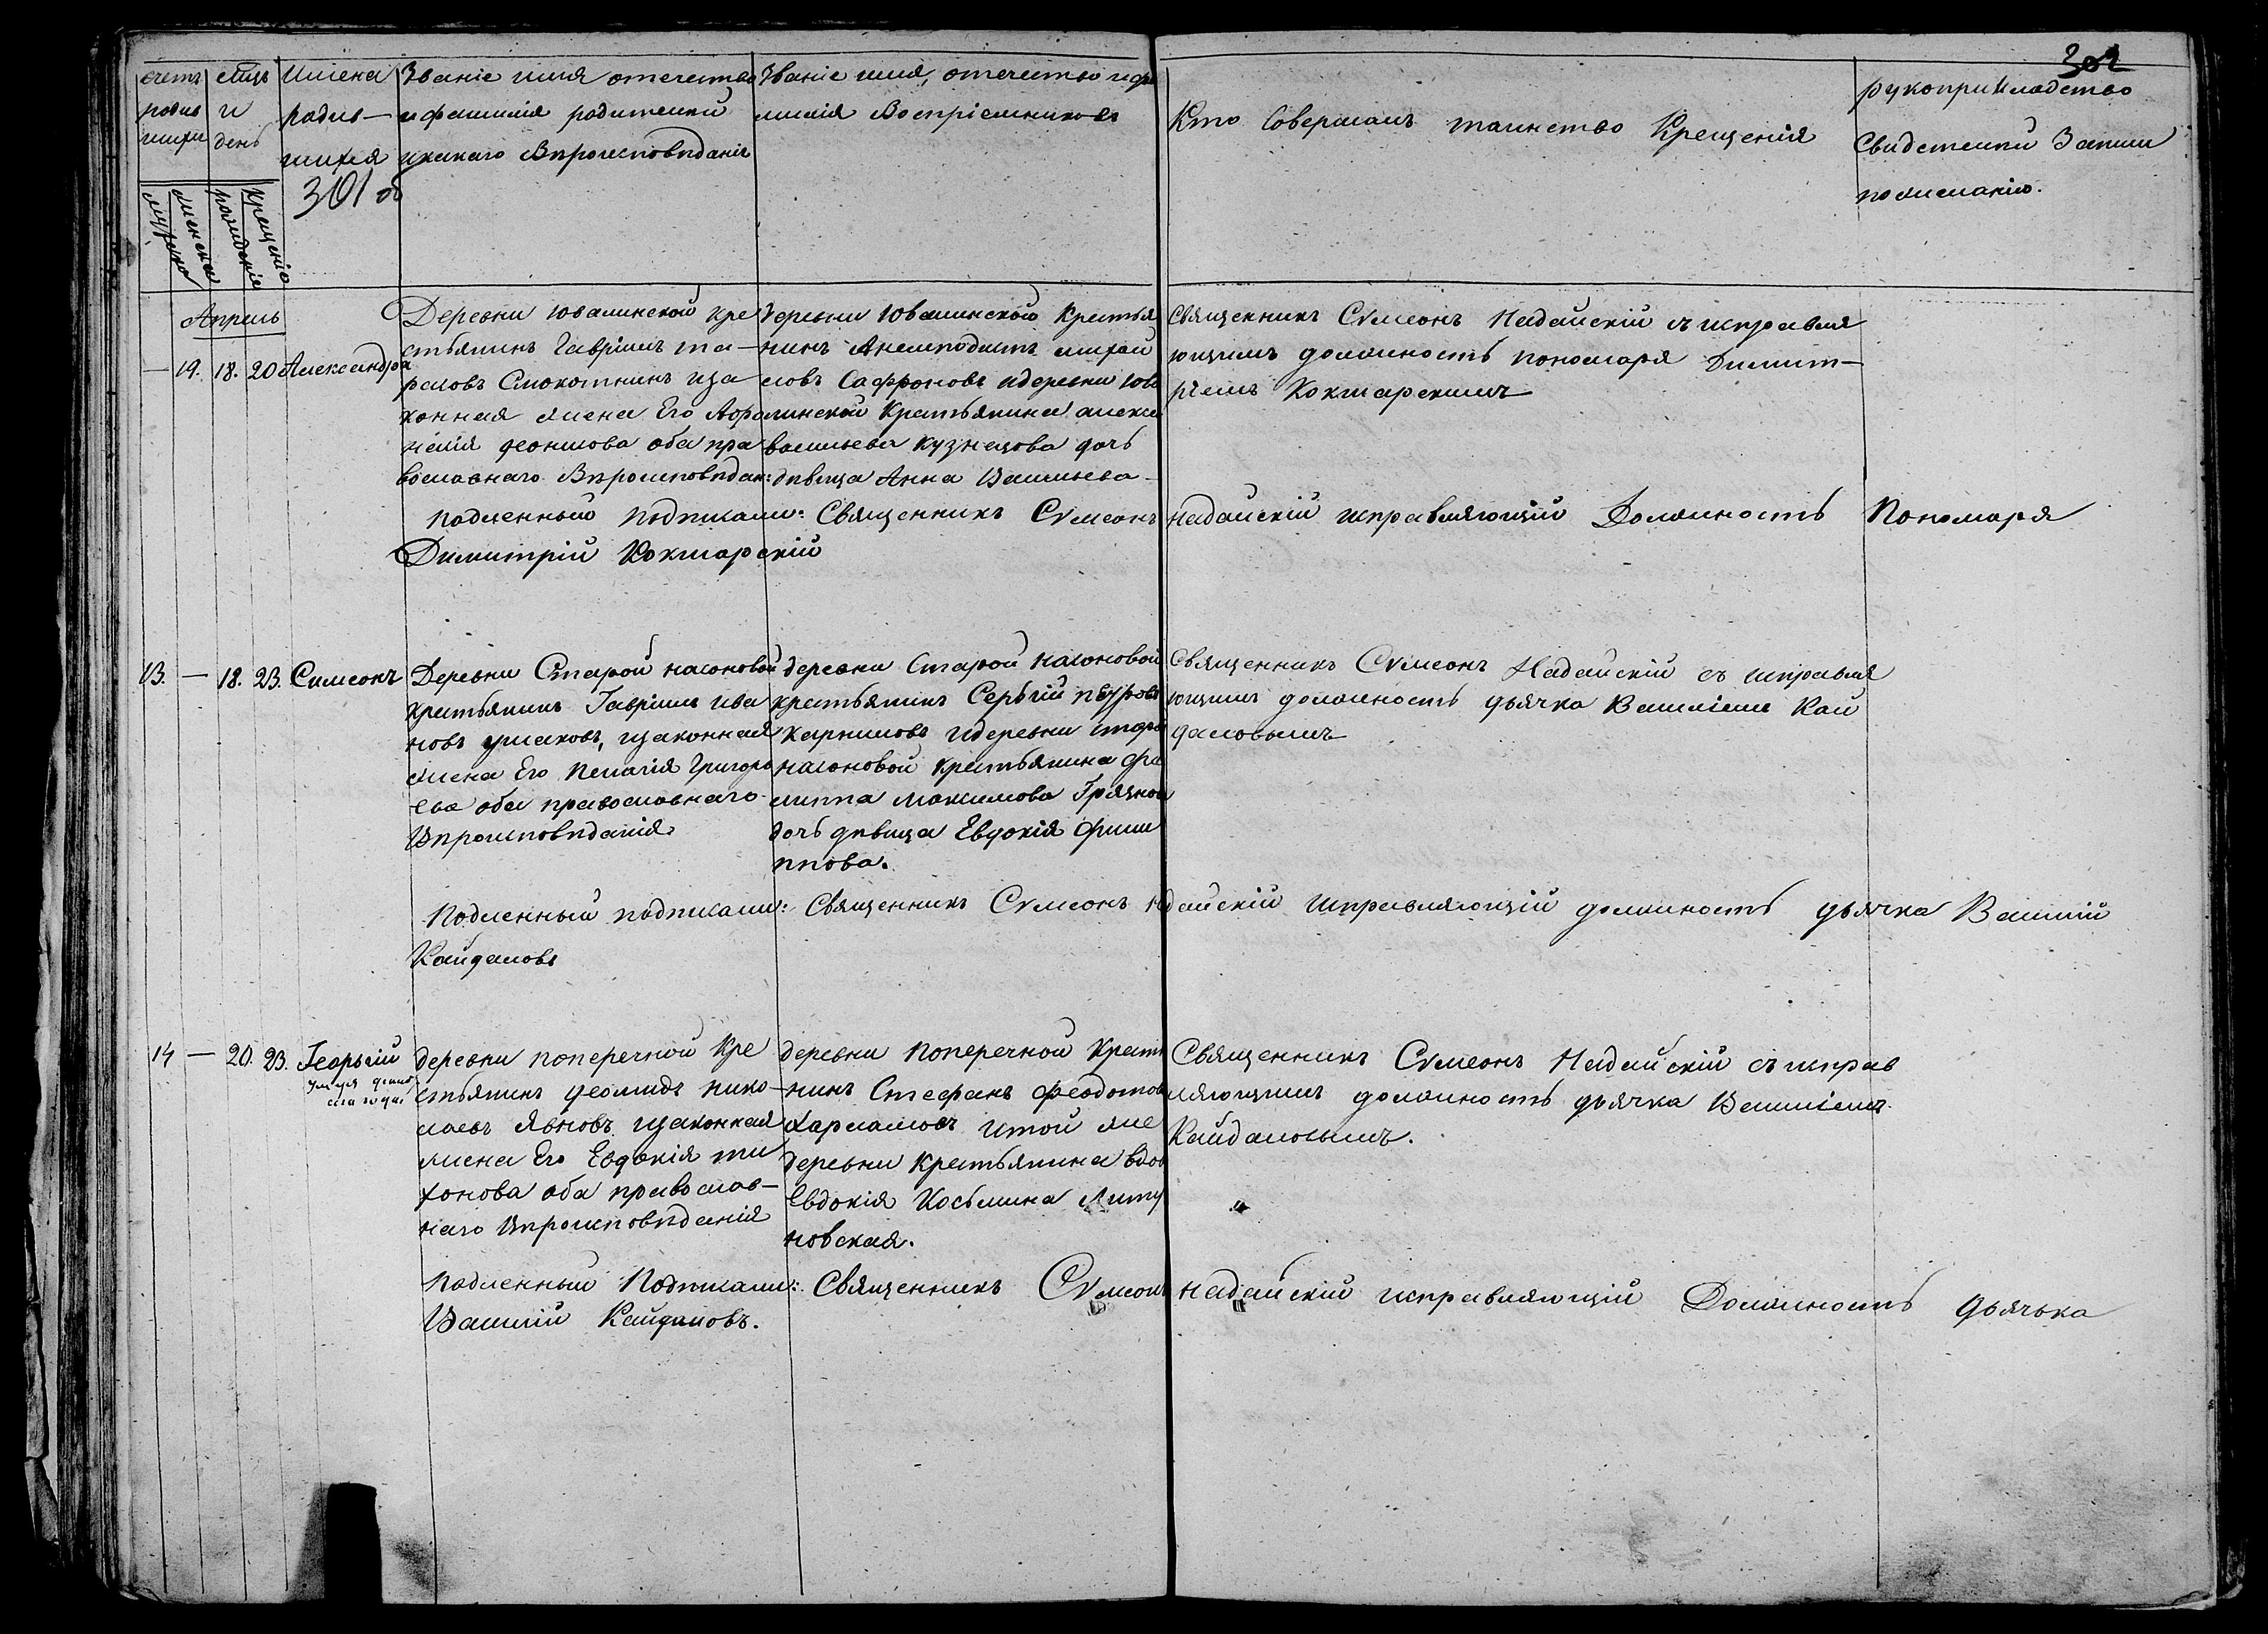 302
счетъ
родив
шихся
мцъ
и
день
имена
родив—
шихся
Званіе имя отечество
и фамилія родителей
и какаго Вѣроисповѣданія
Званіе имя, отечество и фа
милія Воспріемниковъ
Кто Совершалъ таинство Крещенія
рукоприкладство
Свидетелей Записи
по желанію.
301 об
мужеска
женска
рожденія
крещенія
Апрель
— 19. 18. 20 Александра
Деревни Ювалинской кре
стьянинъ Гавріилъ та—
расовъ Смокотнинъ иза
конная жена Его Афа
леонтова оба пра
вославнаго Вѣроисповѣдан:
деревни Ювалинской Крестья
нинъ Анемподистъ михай
ловъ Сафроновъ идеревни Юва
линской Крестьянина алексе
васильева Кузнецова дочь
дѣвица Анна Васильева
Священникъ Сѵмеонъ Надайскій съ исправля
ющимъ должность пономаря Димит—
ріемъ Кокшарскимъ
Подленный подписали: Священникъ Сѵмеонъ Надайскій исправляющій Должность Пономаря
Димитрій Кокшарскій
13. — 18. 23. Симеонъ
Деревни Старой насоновой
крестьянинъ Гавріилъ ива
новъ ушаковъ, изаконная
жена Его Пелагія Григорь
ева оба православнаго
Вѣроисповѣданія
деревни Старой насоновой
крестьянинъ Сергій петровъ
Карниловъ идеревни старой
насоновой Крестьянина фи
липпа Максимова Грязнова
дочь дѣвица Евдокія фили
ппова.
Священникъ Сѵмеонъ Надайскій съ исправля
ющимъ должность дьячка Василіемъ Кай
даловымъ
Подленный подписали: Священникъ Сѵмеонъ Надайскій исправляющій должность дьячка Василій
Кайдаловъ
14 — 20. 23. Георьгій
деревни поперечной Кре
стьянинъ леонидъ нико—
лаевъ Явновъ изаконная
жена Его Евдокія ти
хонова оба православ—
наго Вѣроисповѣданія
деревни Поперечной Крестья
нинъ Стефанъ Феодотовъ
Харламовъ итой же
деревни Крестьянина вдова
Евдокія Косьмина
новская.
Священникъ Сѵмеонъ Надайскій съ исправ
ляющимъ должность дьячка Василіемъ
Кайдаловымъ.
Подленный Подписали: Священникъ Сѵмеонъ Надайскій исправляющій Должность дьячька
Василій Кайдаловъ.